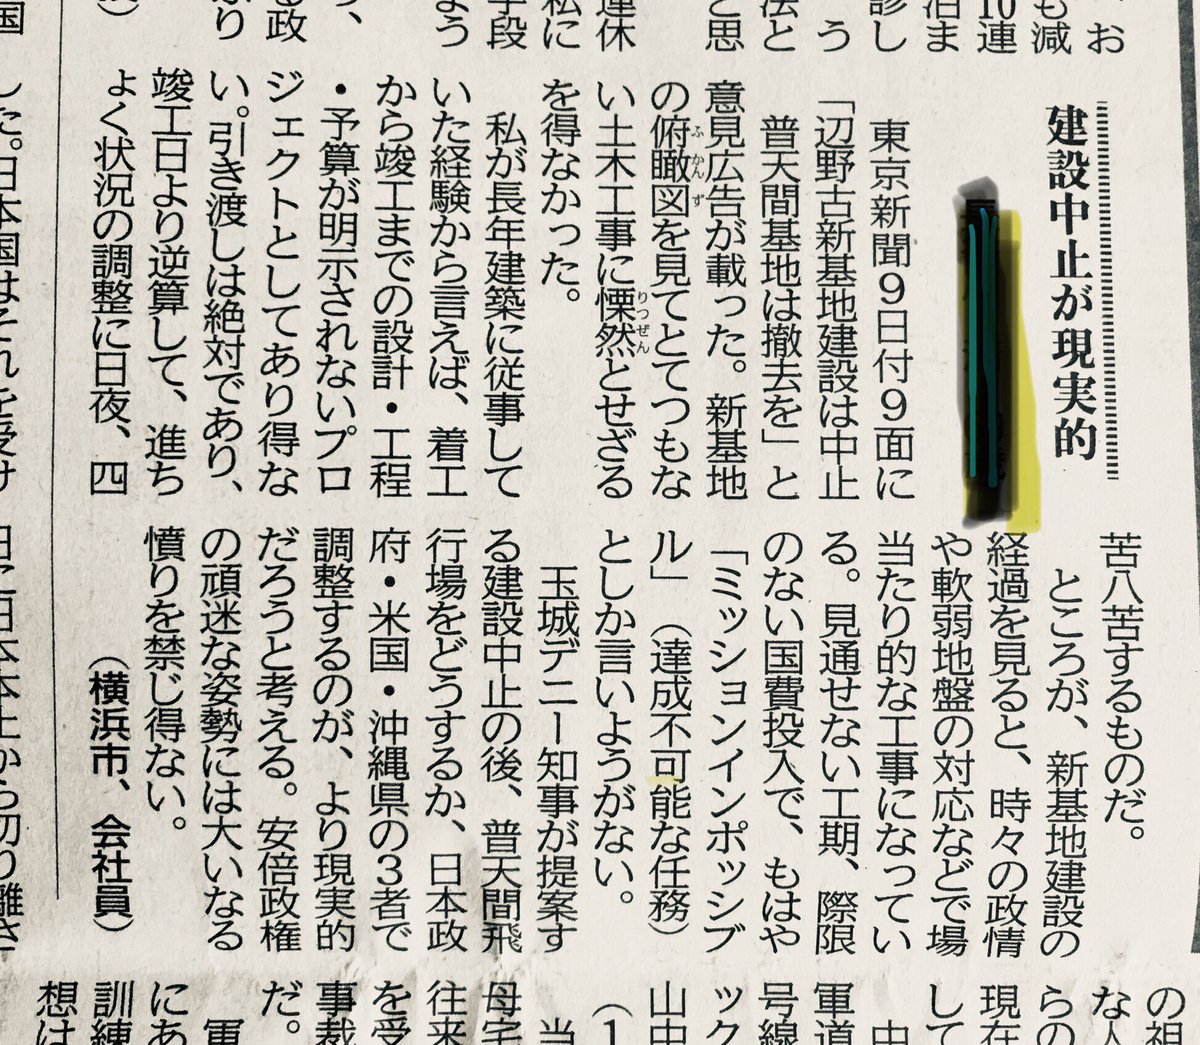 お
も減
10連
泊ま
診し
う
法と
と思
連休
私に
手段
よう
る政
国
建設中止が現実的
東京新聞9日付9面に
「辺野古新基地建設は中止
普天間基地は撤去を」と
意見広告が載った。新基地
の俯瞰図を見てとてつもな
ふかんず
い土木工事に慄然とせざる
りつぜん
を得なかった。
私が長年建築に従事して
いた経験から言えば、着工
から竣工までの設計・工程
・予算が明示されないプロ
ジェクトとしてあり得な
い。引き渡しは絶対であり、
竣工日より逆算して、進ち
ょく状況の調整に日夜、四
苦八苦するものだ。
ところが、新基地建設の
経過を見ると、時々の政情
や軟弱地盤の対応などで場
当たり的な工事になってい
る。見通せない工期、際限
のない国費投入で、もはや
「ミッションインポッシブ
ル」（達成不可能な任務）
としか言いようがない。
玉城デニー知事が提案す
る建設中止の後、普天間飛
行場をどうするか、日本政
府・米国・沖縄県の3者で
調整するのが、より現実的
だろうと考える。安倍政権
の頑迷な姿勢には大いなる
憤りを禁じ得ない。
（横浜市、会社員）
した。日本国はそれを受け
日本本土から切り離さ
の祖
な人
らの
現在
して
中
軍道
号線
ック
山中
（1
当
母宅
往来
を受
事裁
だ。
軍
にあ
訓練
想は